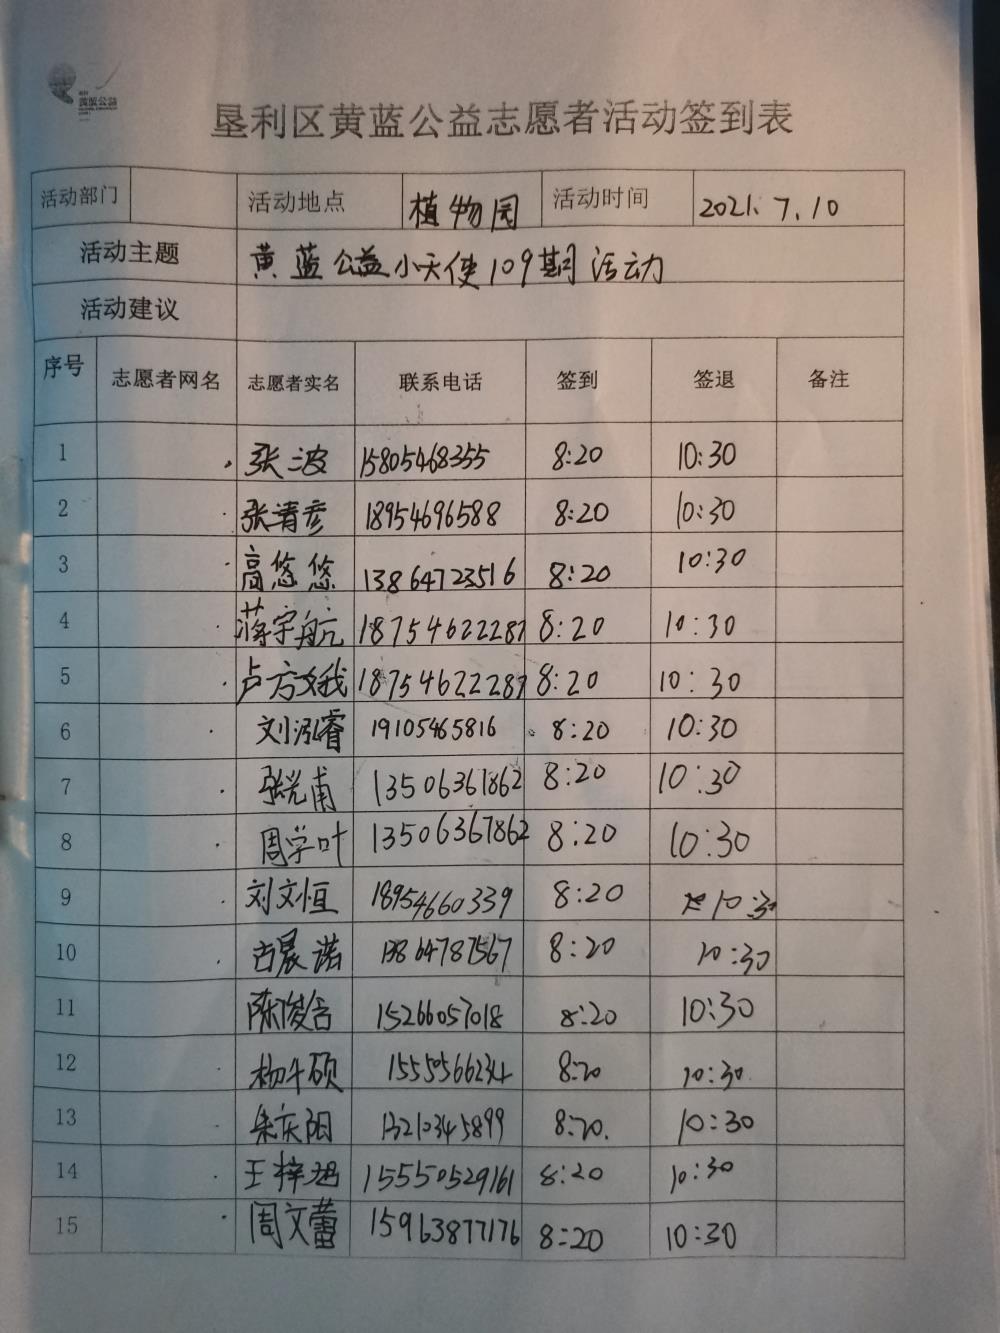 黄蓝公益
垦利区黄蓝公益志愿者活动签到表
活动部门 活动地点 植物园 活动时间 2021.7.10
活动主题 黄蓝公益小天使109期活动
活动建议
序号 志愿者网名 志愿者实名 联系电话 签到 签退 备注
1 张波 15805468355 8:20 10:30
2 张清彦 18954696588 8:20 10:30
3 高悠悠 13864723516 8:20 10:30
4 蒋宇航 18754622287 8:20 10:30
5 卢方娥 18754622287 8:20 10:30
6 刘泓睿 19105465816 8:20 10:30
7 张光甫 13506361862 8:20 10:30
8 周学叶 13506367862 8:20 10:30
9 刘文恒 18954660339 8:20 10:30
10 古晨诺 13864787567 8:20 10:30
11 陈俊含 15266057018 8:20 10:30
12 杨千硕 8:20 10:30
13 朱庆阳 13210345899 8:20. 10:30
14 王梓旭 15550529161 8:20 10:30
15 周文蕾 15963877176 8:20 10:30